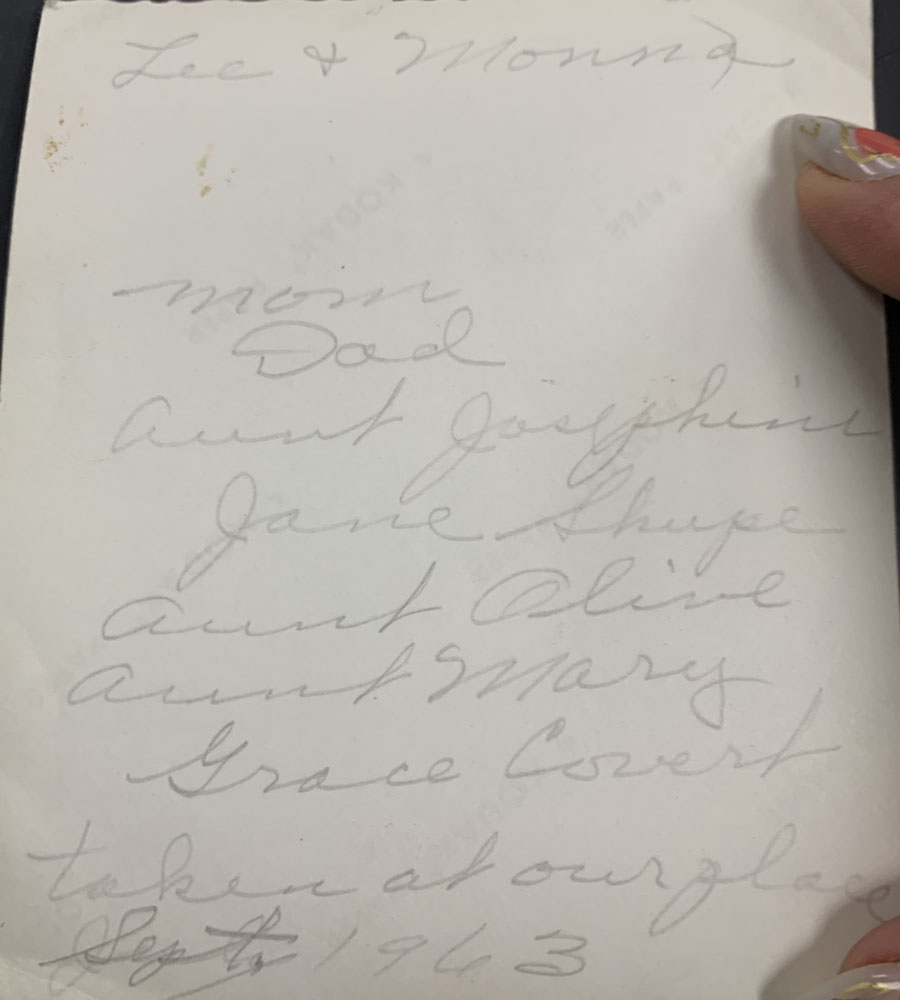 Lee & Monna
Mom
Dad
Aunt Josephine
Jane Shupe
Aunt Olive
Aunt Mary
Grace Covert
taken at our place
Sept. 1963